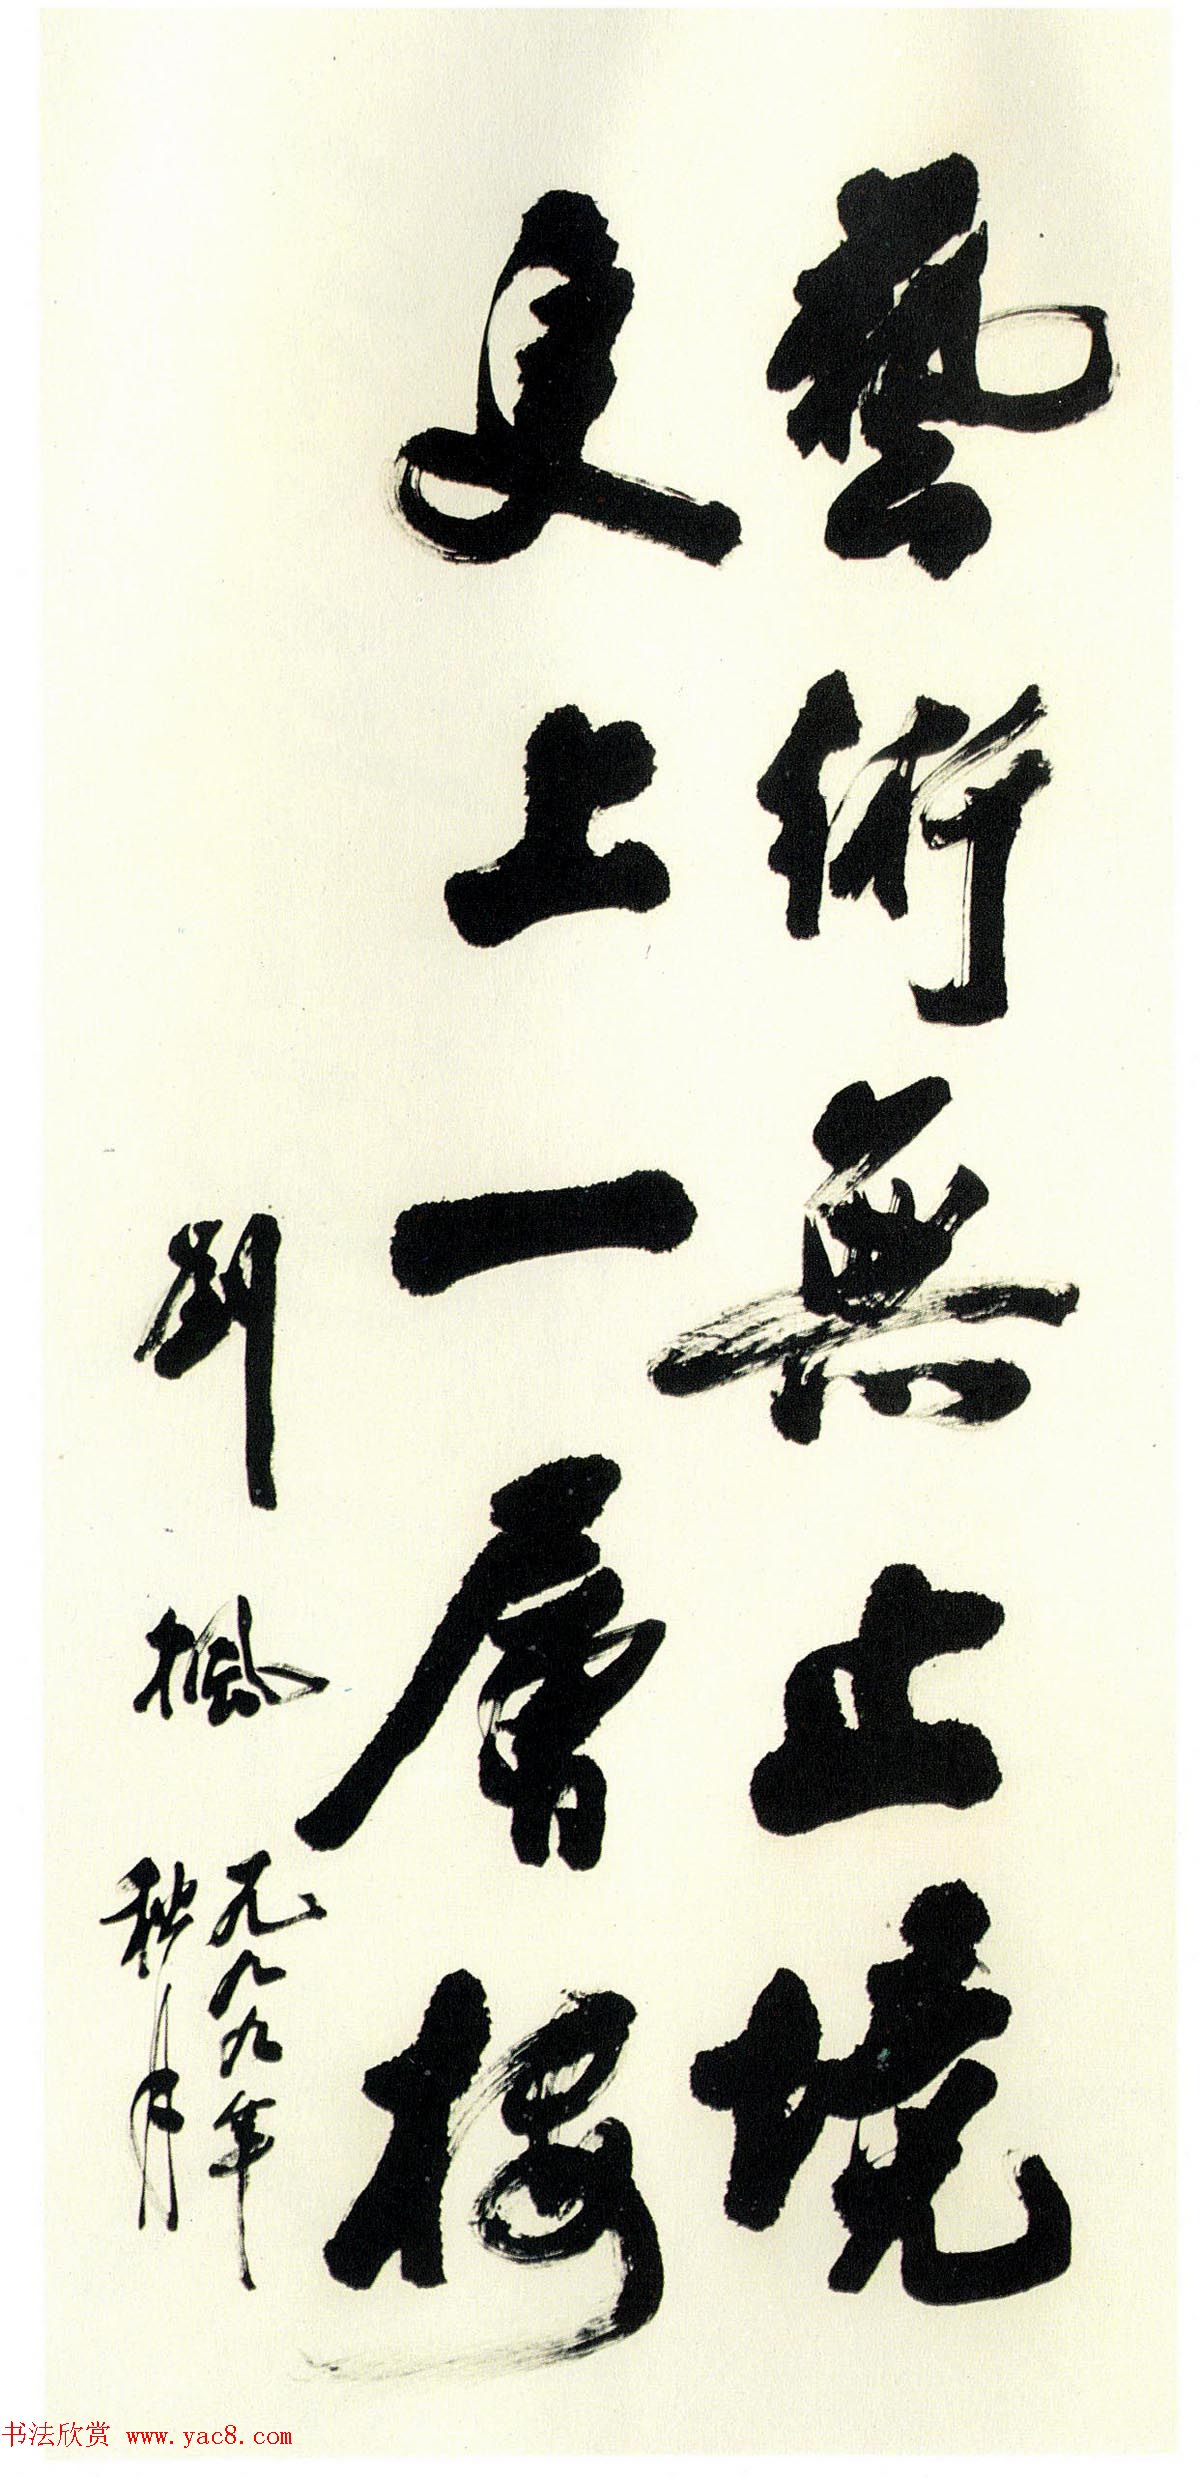 藝術無止境
更上一層楼
劉楓
一九九九年
秋月
书法欣赏 www.yac8.com